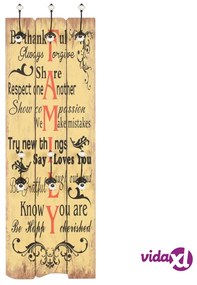 Be thankful
Always Forgive
Share
Respect one Another
Show compassion
We Make mistakes
Try new things
Say I Loves You
Be Grateful
Know you are
Be Happy cherished
FAMILY
vidaXL